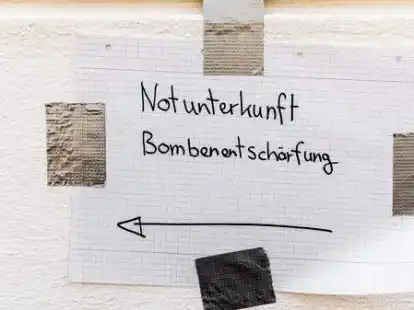 Notunterkunft
Bombenentschärfung